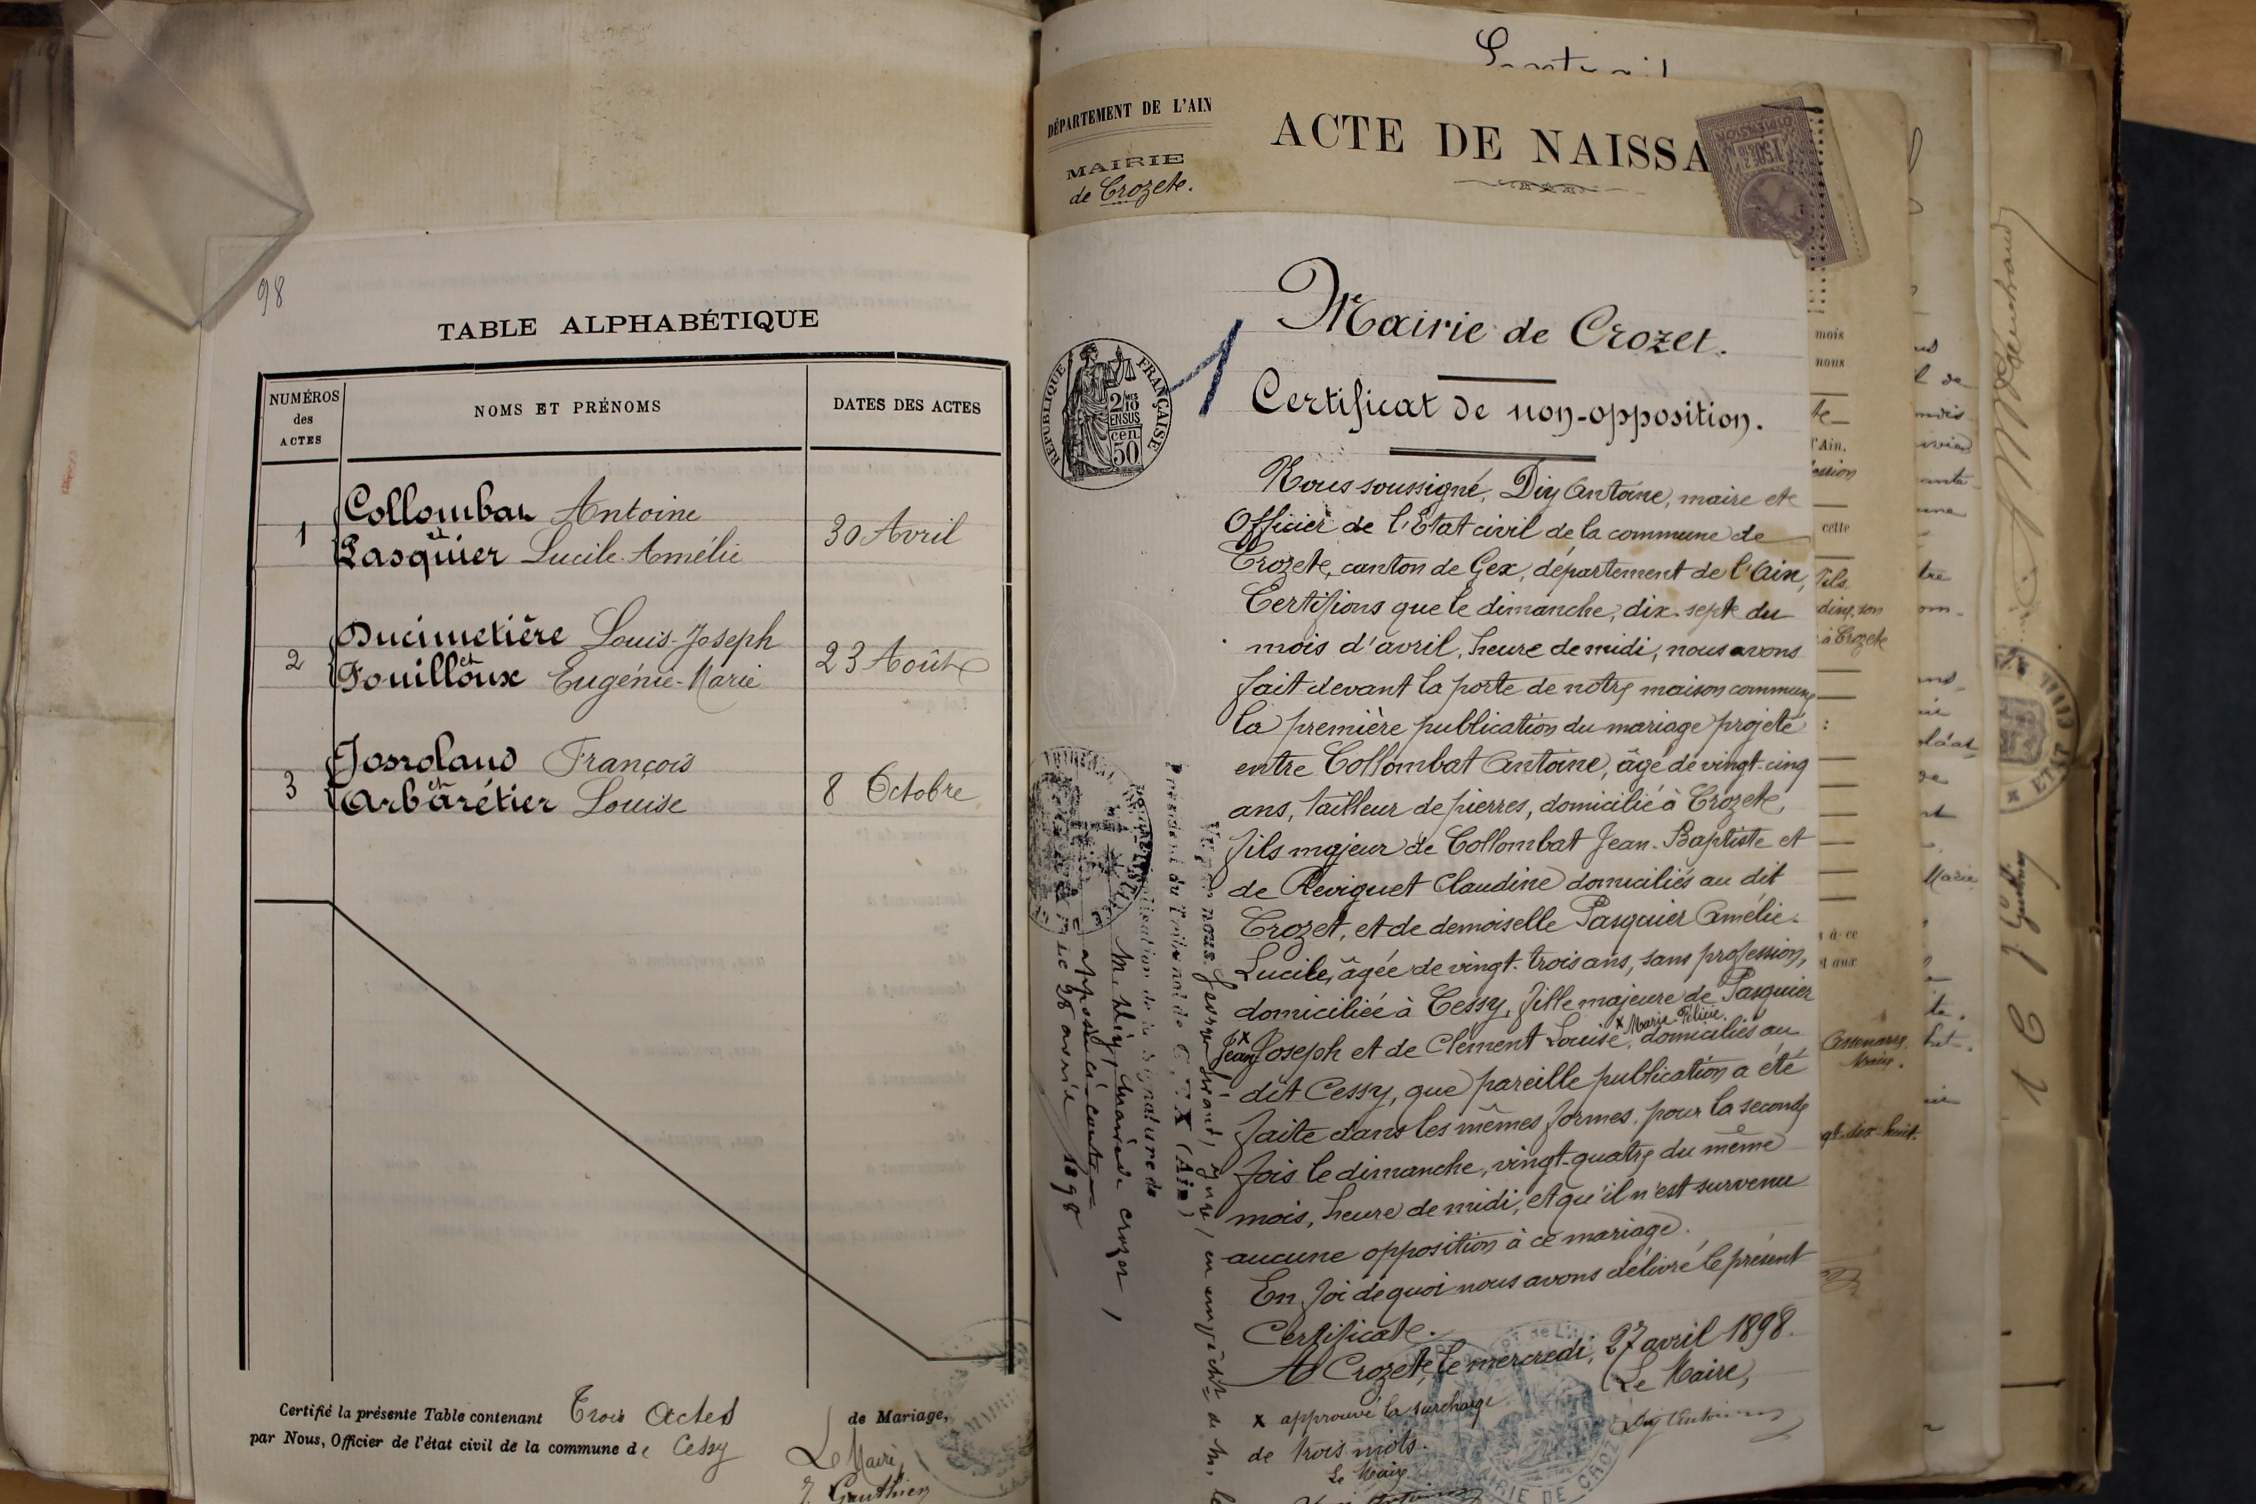 98
TABLE ALPHABÉTIQUE
NUMÉROS
des
ACTES
NOMS ET PRÉNOMS
DATES DES ACTES
Collombat Antoine
1
et
30 Avril
Pasquier Lucile-Amélie
Ducimetière Louis-Joseph
2
et
23 Août
Fouilloux Eugénie-Marie
Josroland François
3
et
8 Octobre
Arbarétier Louise
Certifié la présente Table contenant Trois Actes de Mariage,
par Nous, Officier de l'état civil de la commune de Cessy
Le Maire
J. Gauthier
DÉPARTEMENT DE L'AIN
MAIRIE
de Crozet.
ACTE DE NAISSA
Mairie de Crozet.
RÉPUBLIQUE FRANÇAISE
2/10
EN SUS
50 cen
1
Certificat de non-opposition.
Nous soussigné, Diy Antoine, maire et
Officier de l'Etat civil de la commune de
Crozet, canton de Gex, département de l'Ain,
Certifions que le dimanche, dix-sept du
mois d'avril, heure de midi, nous avons
fait devant la porte de notre maison commune
la première publication du mariage projeté
entre Collombat Antoine, âgé de vingt-cinq
ans, tailleur de pierres, domicilié à Crozet,
fils majeur de Collombat Jean-Baptiste et
de Reviguet Claudine domiciliés au dit
Crozet, et de demoiselle Pasquier Amélie-
Lucile, âgée de vingt-trois ans, sans profession,
domiciliée à Cessy, fille majeure de Pasquier
x Marie-Félicie.
x Jean Joseph et de Clément Louise, domiciliés au
dit Cessy, que pareille publication a été
faite dans les mêmes formes, pour la seconde
fois le dimanche, vingt-quatre du même
mois, heure de midi, et qu'il n'est survenu
aucune opposition à ce mariage.
En foi de quoi nous avons délivré le présent
Certificat.
A Crozet, le mercredi, 27 avril 1898.
Le Maire,
Diy Antoine
x approuvé la surcharge
de trois mots.
Le Maire
MAIRIE DE CROZ
président du Tribunal de GEX (Ain)
législation de la signature de
M. Diy, maire de Crozet,
apposée ci-contre
Le 28 avril 1898
mois
nous
l'Ain.
cette
fils
à Crozet
à ce
et aux
Maire.
Marie
J. Gauthier